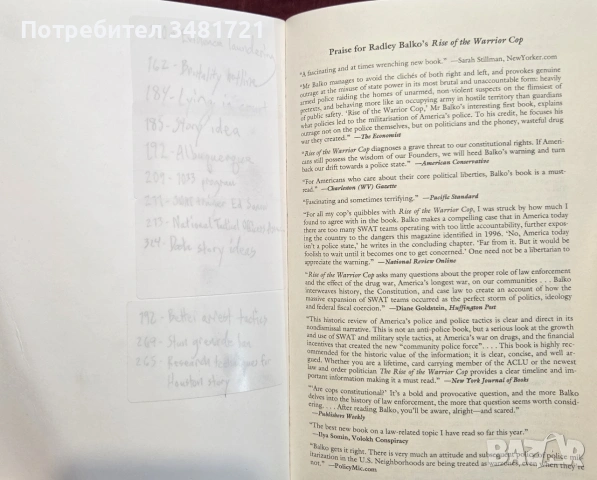 Потребител 3481721
162 - Brutality
184 - Lying in
185 - Story idea
192 - Albuquerque
209 - 1033 program
213 - National Tactical Officers
304 - story ideas
192 - Better arrest tactics
264 - Stun grenade ban
265 - for
Houston story
Praise for Radley Balko's Rise of the Warrior Cop
"A fascinating and at times wrenching new book." —Sarah Stillman, NewYorker.com
"Mr Balko manages to avoid the clichés of both right and left, and provokes genuine
outrage at the misuse of state power in its most brutal and unaccountable form: heavily
armed police raiding the homes of unarmed, non-violent suspects on the flimsiest of
pretexts, and behaving more like an occupying army in hostile territory than guardians
of public safety. 'Rise of the Warrior Cop,' Mr Balko's interesting first book, explains
what policies led to the militarisation of America's police. To his credit, he focuses his
outrage not on the police themselves, but on politicians and the phoney, wasteful drug
war they created." —The Economist
"Rise of the Warrior Cop diagnoses a grave threat to our constitutional rights. If Ameri-
cans still possess the wisdom of our Founders, we will heed Balko's warning and turn
back our drift towards a police state." —American Conservative
"For Americans who care about their core political liberties, Balko's book is a must-
read." —Charleston (WV) Gazette
"Fascinating and sometimes terrifying." —Pacific Standard
"For all my cop's quibbles with Rise of the Warrior Cop, I was struck by how much I
found to agree with in the book. Balko makes a compelling case that in America today
there are too many SWAT teams operating with too little accountability, further expos-
ing the country to the dangers this magazine identified in 1996. 'No, America today
isn't a police state,' he writes in the concluding chapter. 'Far from it. But it would be
foolish to wait until it becomes one to get concerned.' One need not be a libertarian to
appreciate the warning." —National Review Online
"Rise of the Warrior Cop asks many questions about the proper role of law enforcement
and the effect of the drug war, America's longest war, on our communities . . . Balko
interweaves history, the Constitution, and case law to create an account of how the
massive expansion of SWAT teams occurred as the perfect storm of politics, ideology
and federal fiscal coercion." —Diane Goldstein, Huffington Post
"This historic review of America's police and police tactics is clear and direct in its
nondismissal narrative. This is not an anti-police book, but a serious look at the growth
and use of SWAT and military style tactics, at America's war on drugs, and the financial
incentives that created the new "community police force". . . . This book is highly rec-
ommended for the historic value of the information; it is clear, concise, and well ar-
gued. Whether you are a lifetime, card carrying member of the ACLU or the newest
law and order politician The Rise of the Warrior Cop provides a clear timeline and im-
portant information making it a must read." —New York Journal of Books
"'Are cops constitutional?' It's a bold and provocative question, and the more Balko
delves into the history of law enforcement, the more that question seems worth consid-
ering. . . . After reading Balko, you'll be aware, alright—and scared."
—Publishers Weekly
"The best new book on a law-related topic I have read so far this year."
—Ilya Somin, Volokh Conspiracy
"Balko gets it right. There is very much an attitude and subsequent policy of police mil-
itarization in the U.S. Neighborhoods are being treated as warzones, even when they're
not." —PolicyMic.com
BAZAR